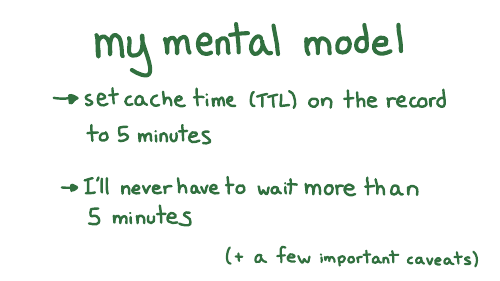 my mental model
→ set cache time (TTL) on the record
to 5 minutes
→ I'll never have to wait more than
5 minutes
(+ a few important caveats)